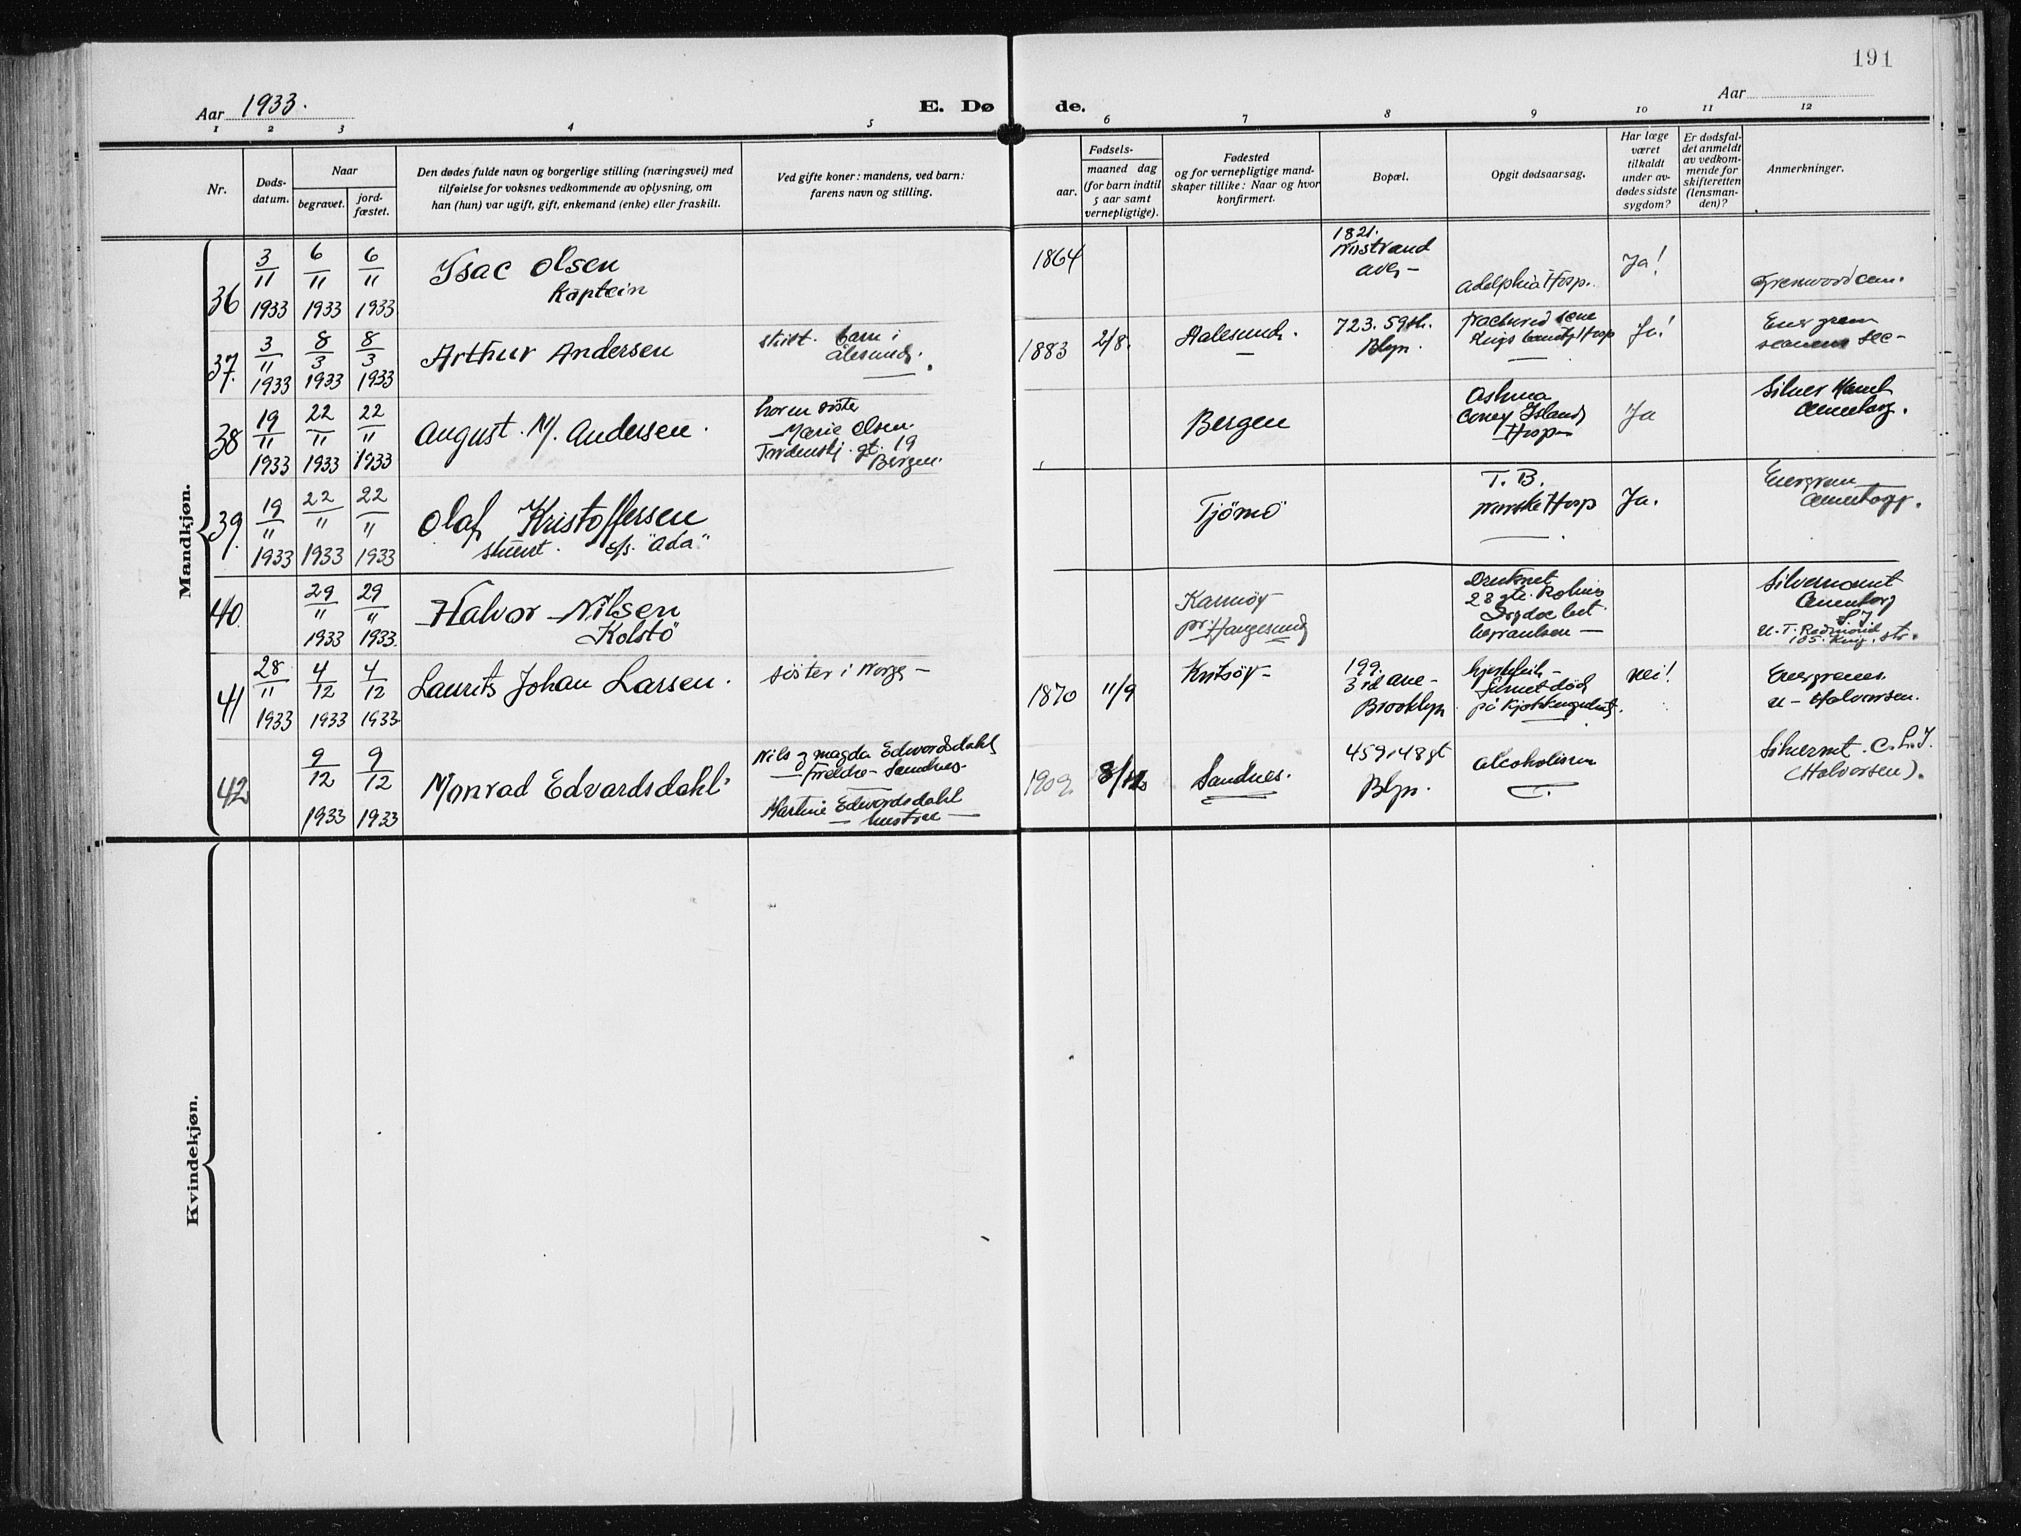 191
Aar 1933.
E. Dø de.
Aar
1 2 3 4 5 6 7 8 9 10 11 12
Nr.
Døds-
datum.
Naar
begravet.
jord-
fæstet.
Den dødes fulde navn og borgerlige stilling (næringsvei) med
tilføielse for voksnes vedkommende av oplysning, om
han (hun) var ugift, gift, enkemand (enke) eller fraskilt.
Ved gifte koner: mandens, ved barn:
farens navn og stilling.
Fødsels-
aar.
maaned dag
(for barn indtil
5 aar samt
vernepligtige).
Fødested
og for vernepligtige mand-
skaper tillike: Naar og hvor
konfirmert.
Bopæl.
Opgit dødsaarsag.
Har læge
været
tilkaldt
under av-
dødes sidste
sygdom?
Er dødsfal-
det anmeldt
av vedkom-
mende for
skifteretten
(lensman-
den)?
Anmerkninger.
Mandkjøn.
36
3/11 1933
6/11 1933
6/11 1933
Isac Olsen
Kaptein
1864
1821.
Nostrand
ave -
Adelphia Hosp.
Ja!
Grenwood cem.
37.
3/11 1933
8/3 1933
8/3 1933
Arthur Andersen
barn i
Ålesund.
1883
2/8.
Aalesund.
723. 59th.
Blyn.
Ja!
38
19/11 1933
22/11 1933
22/11 1933
August. M. Andersen.
Marie Olsen.
Tordenskj. gt. 19
Bergen.
Bergen
Asthma
Coney Island
Hosp
Ja
39.
19/11 1933
22/11 1933
22/11 1933
Olaf Kristoffersen
stuert. s/s. "Ada"
Tjömö
T. B.
norske Hosp
Ja.
40.
29/11 1933
29/11 1933
Halvor Nilsen
Kolstö
Karmöy
pr. Haugesund
Druknet
41
28/11 1933
4/12 1933
4/12 1933
Laurits Johan Larsen.
söster i Norge -
1870
11/9
199.
3rd ave -
Brooklyn
nei!
u - Halvorsen.
42
9/12 1933
9/12 1933
Monrad Edvardsdahl
Nils og Magda Edvardsdahl
foreldre - Sandnes.
Martine Edvardsdahl
hustru
1909.
Sandnes.
459, 48 gt
Blyn.
Alcoholism
(Halvorsen).
Kvindekjøn.